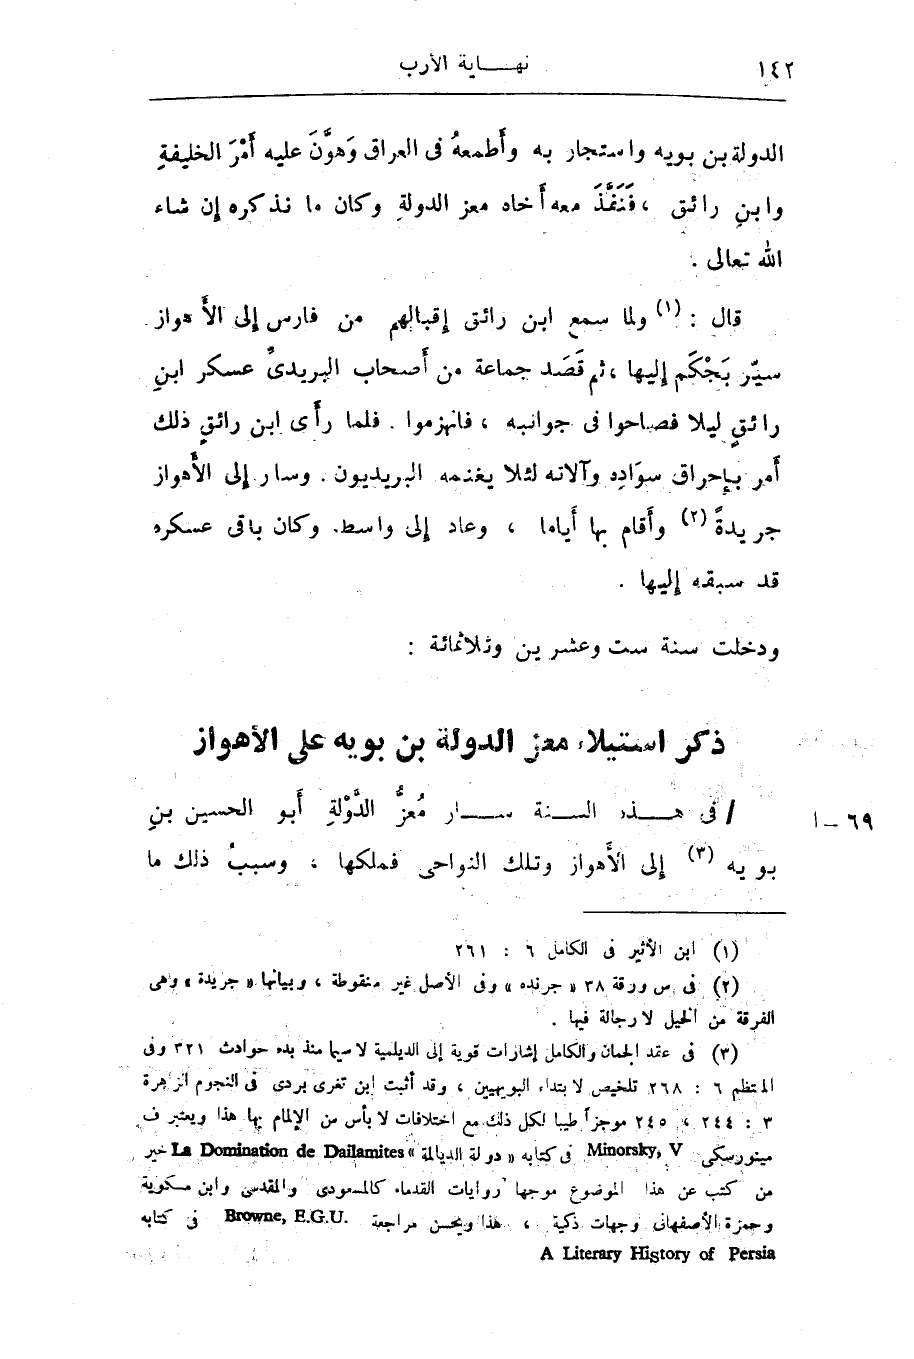 ١٤٢
نهاية الأرب
الدولة بن بويه واستجار به وأطمعهُ فى العراق وَهوَّنَ عليه أَمْرَ الخليفةِ
وابنِ رائق ، فَنَفَّذَ معه أخاه معز الدولةِ وكان ما نذكره إن شاء
الله تعالى .
قال : (١) ولما سمع ابن رائق إقبالهم من فارس إلى الأَهواز
سيّر بَجْكَم إليها ، ثم قَصَد جماعة من أَصحاب البريدىِّ عسكر ابنِ
رائقٍ ليلا فصاحوا فى جوانبه ، فانهزموا . فلما رأَى ابن رائقٍ ذلك
أَمر بإحراق سوَادِه وآلاته لئلا يغنمه البريديون . وسار إلى الأَهواز
جريدةً (٢) وأَقام بها أَياما ، وعاد إلى واسط. وكان باقى عسكره
قد سبقه إليها .
ودخلت سنة ست وعشرين وثلاثمائة :
ذكر استيلاء معز الدولة بن بويه على الأهواز
٦٩ – ا
/ فى هذه السنة سار مُعزُّ الدَّوْلةِ أَبو الحسين بنِ
بويه (٣) إلى الأَهواز وتلك النواحى فملكها ، وسببُ ذلك ما
(١) ابن الأثير فى الكامل ٦ : ٢٦١
(٢) فى س ورقة ٣٨ « جرنده » وفى الأصل غير منقوطة ، وبيانها « جريدة » وهى
الفرقة من الخيل لا رجالة فيها .
(٣) فى عقد الجمان والكامل إشارات قوية إلى الديلمية لا سيما منذ بدء حوادث ٣٢١ وفى
المنتظم ٦ : ٢٦٨ تلخيص لابتداء البويهيين ، وقد أثبت ابن تغرى بردى فى النجوم الزاهرة
٣ : ٢٤٤ ، ٢٤٥ موجزاً طيبا لكل ذلك مع اختلافات لا بأس من الإلمام بها هذا ويعتبر ف.
مينورسكى Minorsky, V فى كتابه « دولة الديالمة » La Domination de Dailamites خير
من كتب عن هذا الموضوع موجها روايات القدماء كالمسعودى والمقدسى وابن مسكوية
وحمزة الأصفهانى وجهات ذكية ، هذا ويحسن مراجعة Browne, E.G.U. فى كتابه
A Literary Higtory of Persia